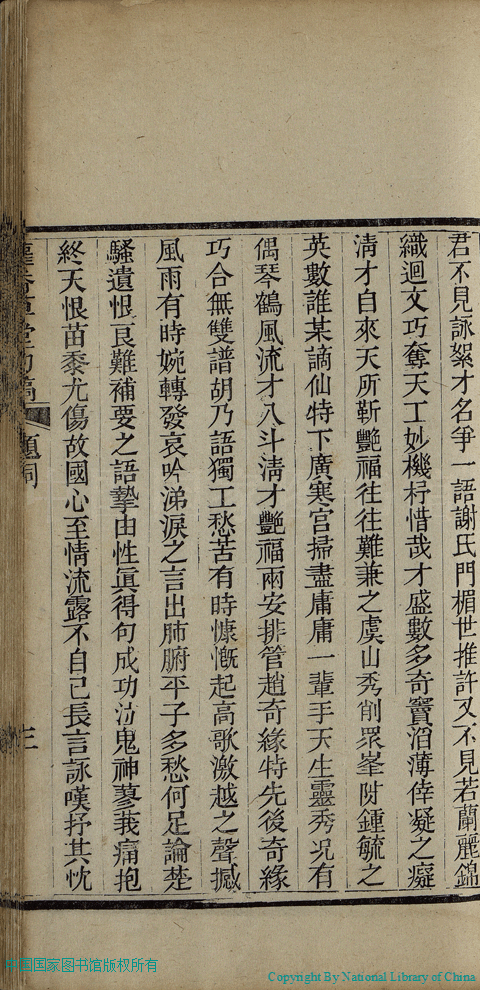 君不見詠絮才名爭一語謝氏門楣世推許又不見若蘭麗錦
織迴文巧奪天工妙機杼惜哉才盛數多奇竇滔薄倖凝之癡
清才自來天所靳艷福往往難兼之虞山秀削眾峯附鍾毓之
英數誰某謫仙特下廣寒宮掃盡庸庸一輩手天生靈秀况有
偶琴鶴風流才八斗清才艷福兩安排管趙奇緣特先後奇緣
巧合無雙譜胡乃語獨工愁苦有時慷慨起高歌激越之聲撼
風雨有時婉轉發哀吟涕淚之言出肺腑平子多愁何足論楚
騷遺恨良難補要之語摯由性眞得句成功泣鬼神蓼莪痛抱
終天恨苗黍尤傷故國心至情流露不自已長言詠嘆抒其忱
題詞
三
中国国家图书馆版权所有
Copyright By National Library of China